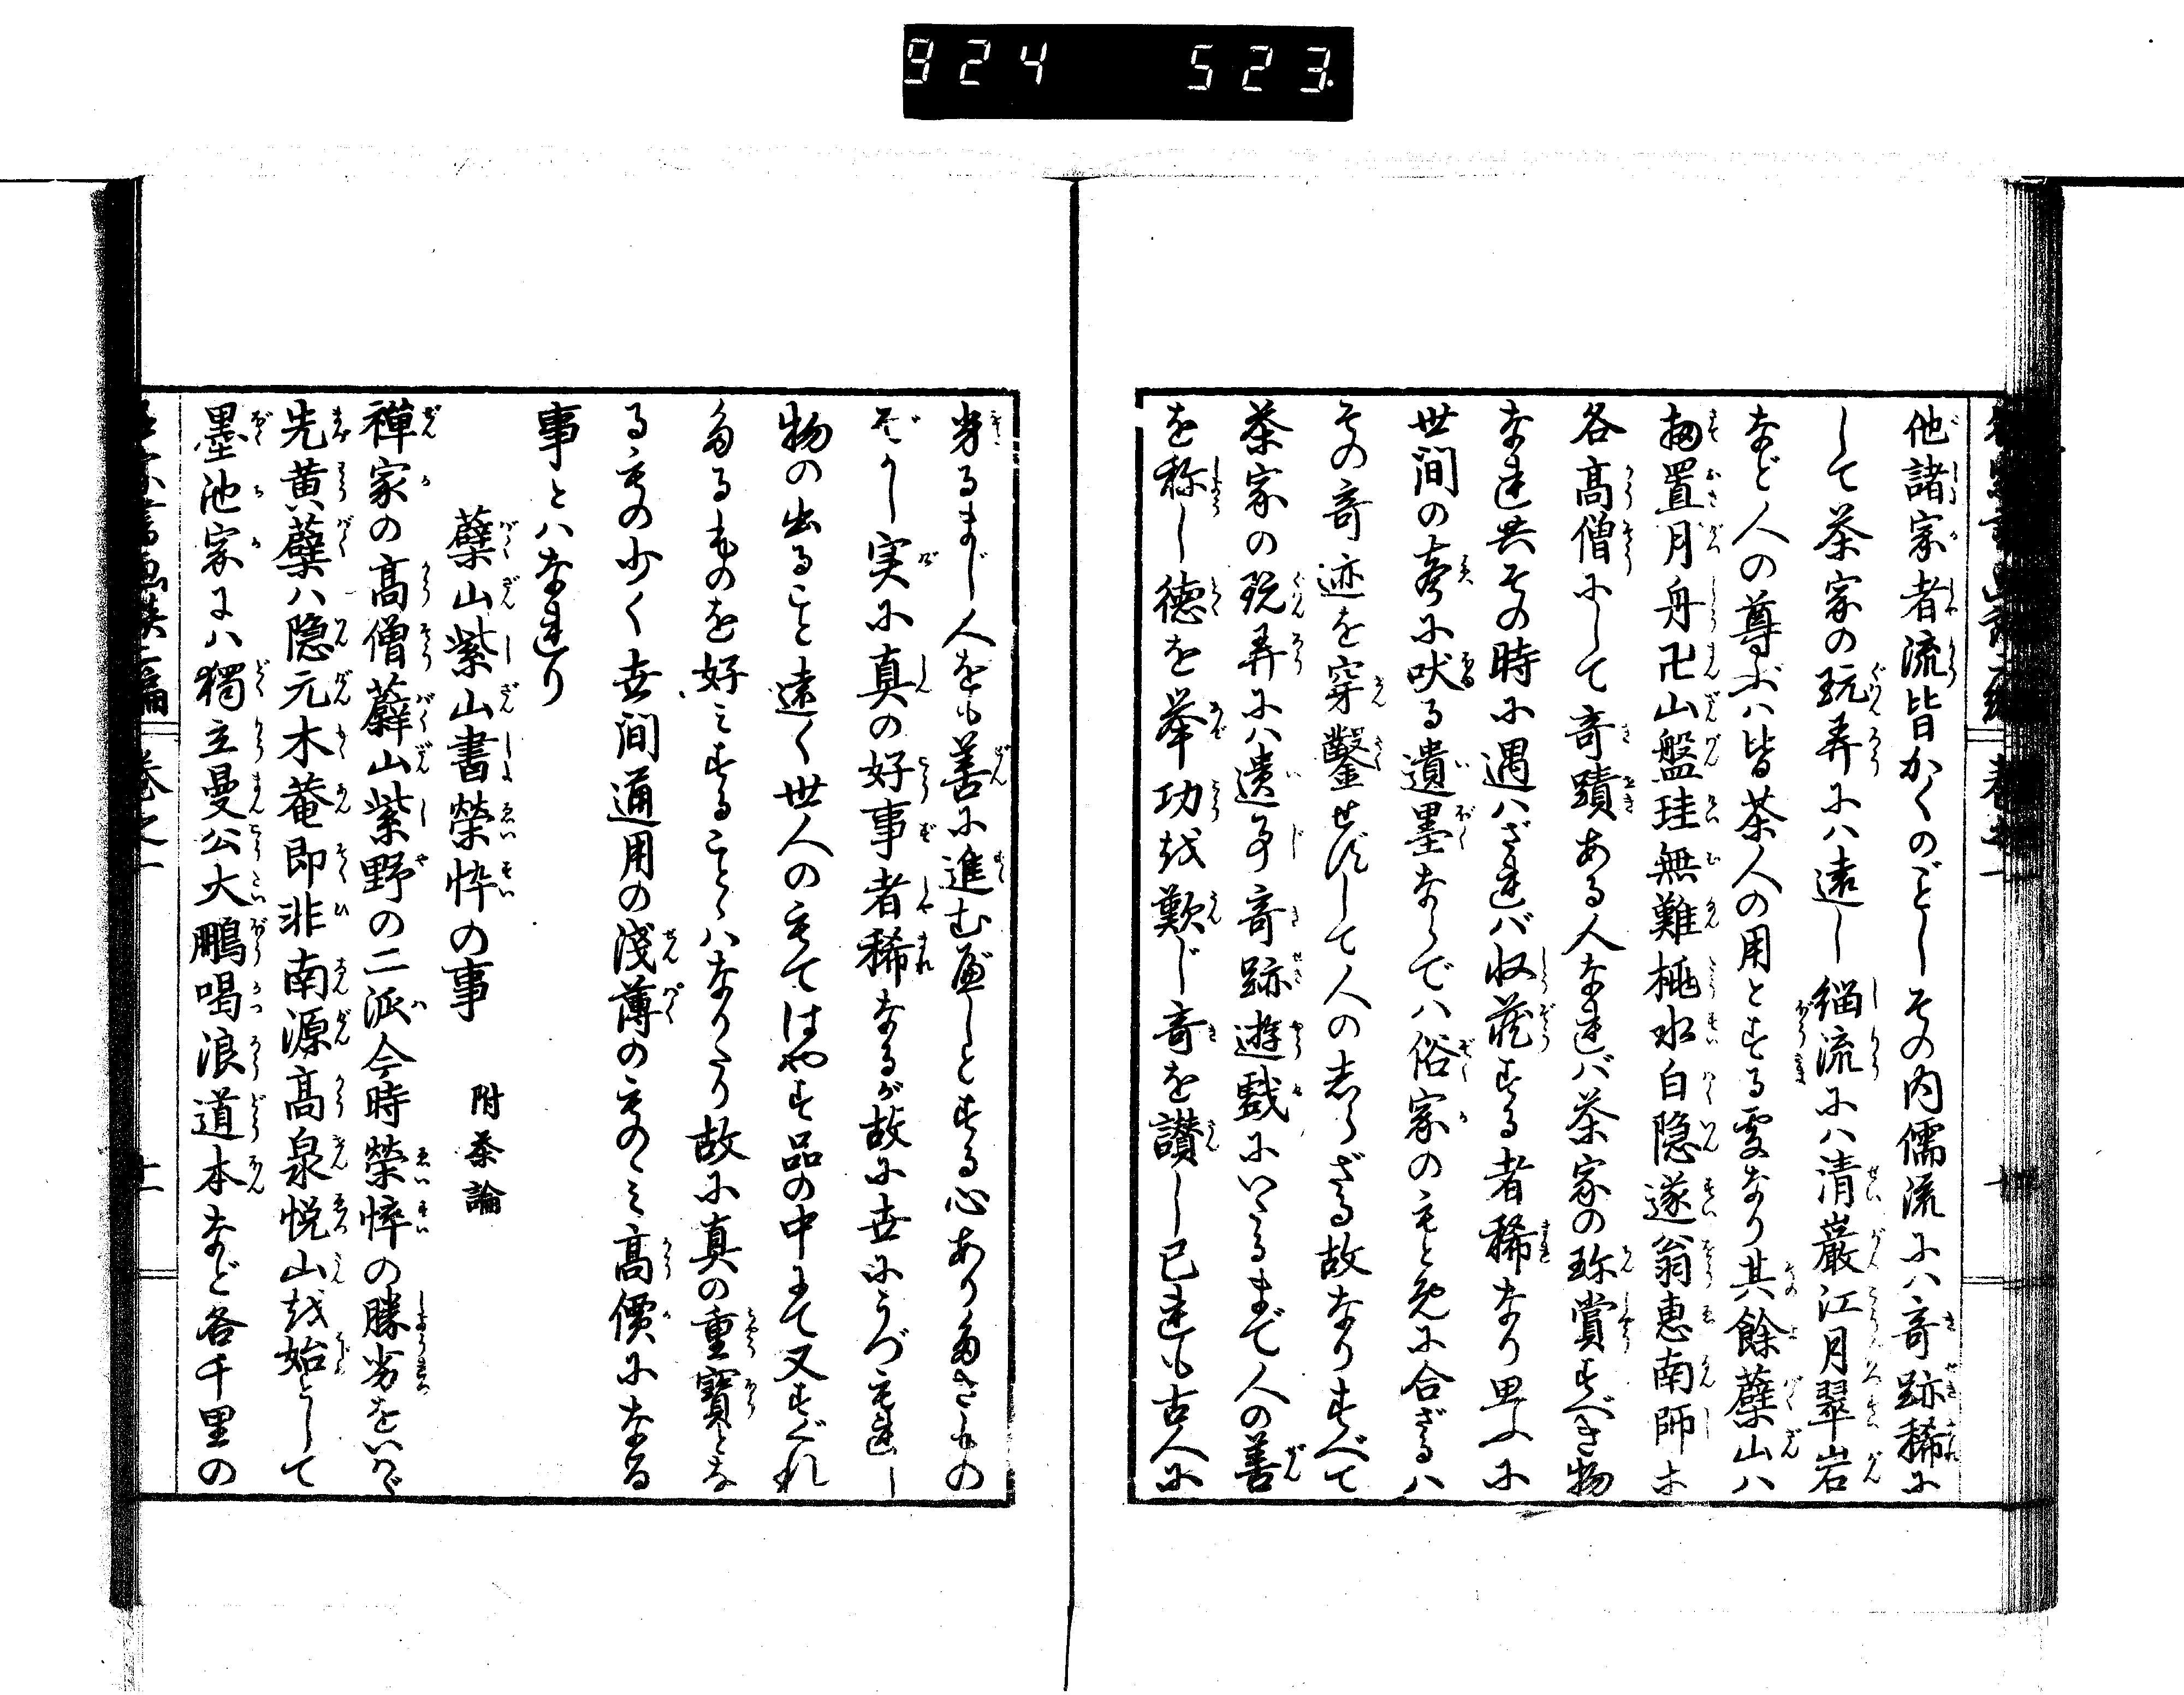 924 523
他諸家者流皆かくのごとしその内儒流にハ竒跡稀に
して茶家の玩弄にハ遠し緇流にハ清巖江月翠岩
など人の尊ぶハ皆茶人の用とする処なり其餘蘗山ハ
扨置月舟卍山盤珪無難桃水白隠遂翁恵南師等
各高僧にして竒蹟ある人なれバ茶家の珎賞すべき物
なれ共その時に遇ハざれバ収蔵する者稀なり思ふに
世間の声に吠る遺墨ならでハ俗家のもとめに合ざるハ
その竒迹を穿鑿せずして人のしらざる故なりすべて
茶家の玩弄にハ遺事竒跡遊戯にいたるまで人の善
を称し徳を挙功を歎じ竒を讃し已れも古人に
劣るまじ人をも善に進むべしとする心ありたきもの
ぞかし実に真の好事者稀なるが故に世にうづもれし
物の出ること遠く世人のもてはやす品の中にて又すぐれ
たるものを好ミすることゝハなりたり故に真の重寳とな
るもの少く世間通用の淺薄のものゝミ高價になる
事とハなれり
蘗山紫山書榮悴の事 附茶論
禅家の高僧蘗山紫野の二派今時榮悴の勝劣をいハゞ
先黄蘗ハ隠元木菴即非南源高泉悦山を始として
墨池家にハ獨立曼公大鵬喝浪道本など各千里の